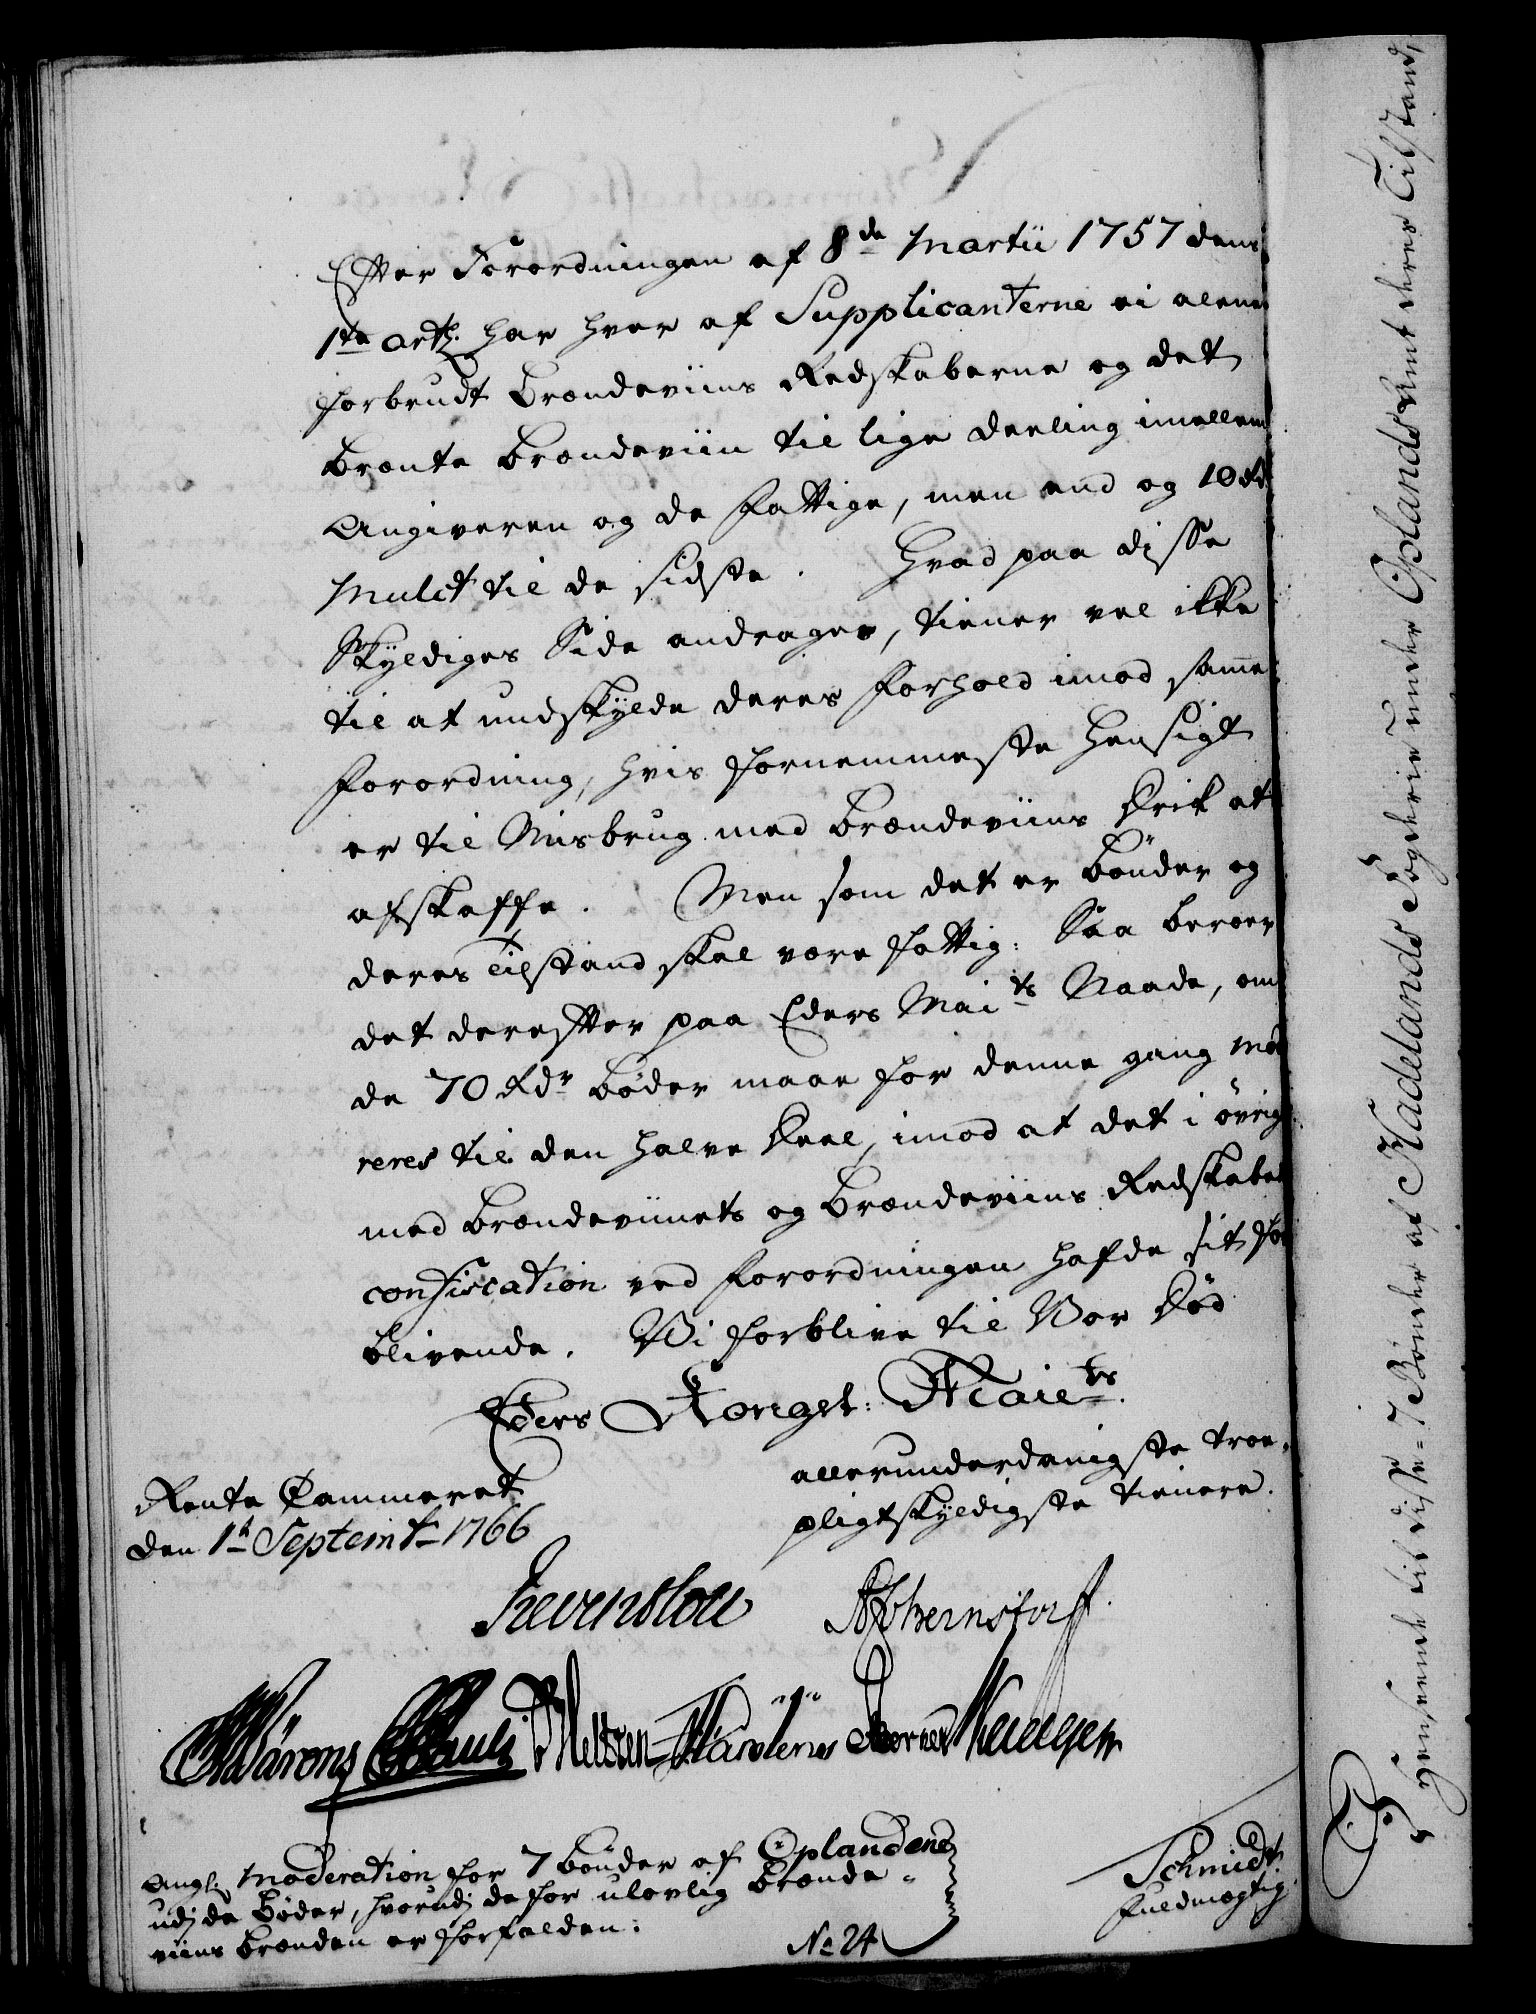 Efter Forordningen af 8de Martii 1757 dens
1te artl. har hver af Supplicanterne ei alene
forbrudt Brændeviins Redskaberne og det
Brænte Brændeviin til lige deeling imellem
Angiveren og de Fattige, men end og 10 Rd
Mulct til de sidste. Hvad paa disse
Skyldiges Side andrages, tiener vel ikke
til at undskylde deres Forhold imod samme
Forordning, hvis fornemmeste Hensigt
er til Misbrug med Brændeviins Drik at
afskaffe. Men som det er Bönder og
deres Tilstand skal være fattig: Saa beroer
det derefter paa Eders Maits Naade, om
de 70 Rdr Bøder maae for denne gang mode
reres til den halve Deel, imod at det i øvrigt
med Brændeviinets og Brændeviins Redskabets
confiscation ved Forordningen hafde sit For
blivende. Vi forblive til Vor Død
Eders Kongel: Maiets
allerunderdanigste troe-
pligtskyldigste tienere.
Rente Cammeret
den 1te Septembr 1766
Reventlou AGBernstorff
Wärens Pauli Meltzen
Schmidt
Fuldmægtig
Angl. Moderation for 7 Bönder af Oplandene
udj de Bøder, hvorudj de for ulovlig Brænde-
viins Brænden er forfalden:
No 24
I Henseende til disse 7 Bönder af Hadelands Fogderie under Oplands Amt deres Tilstand,